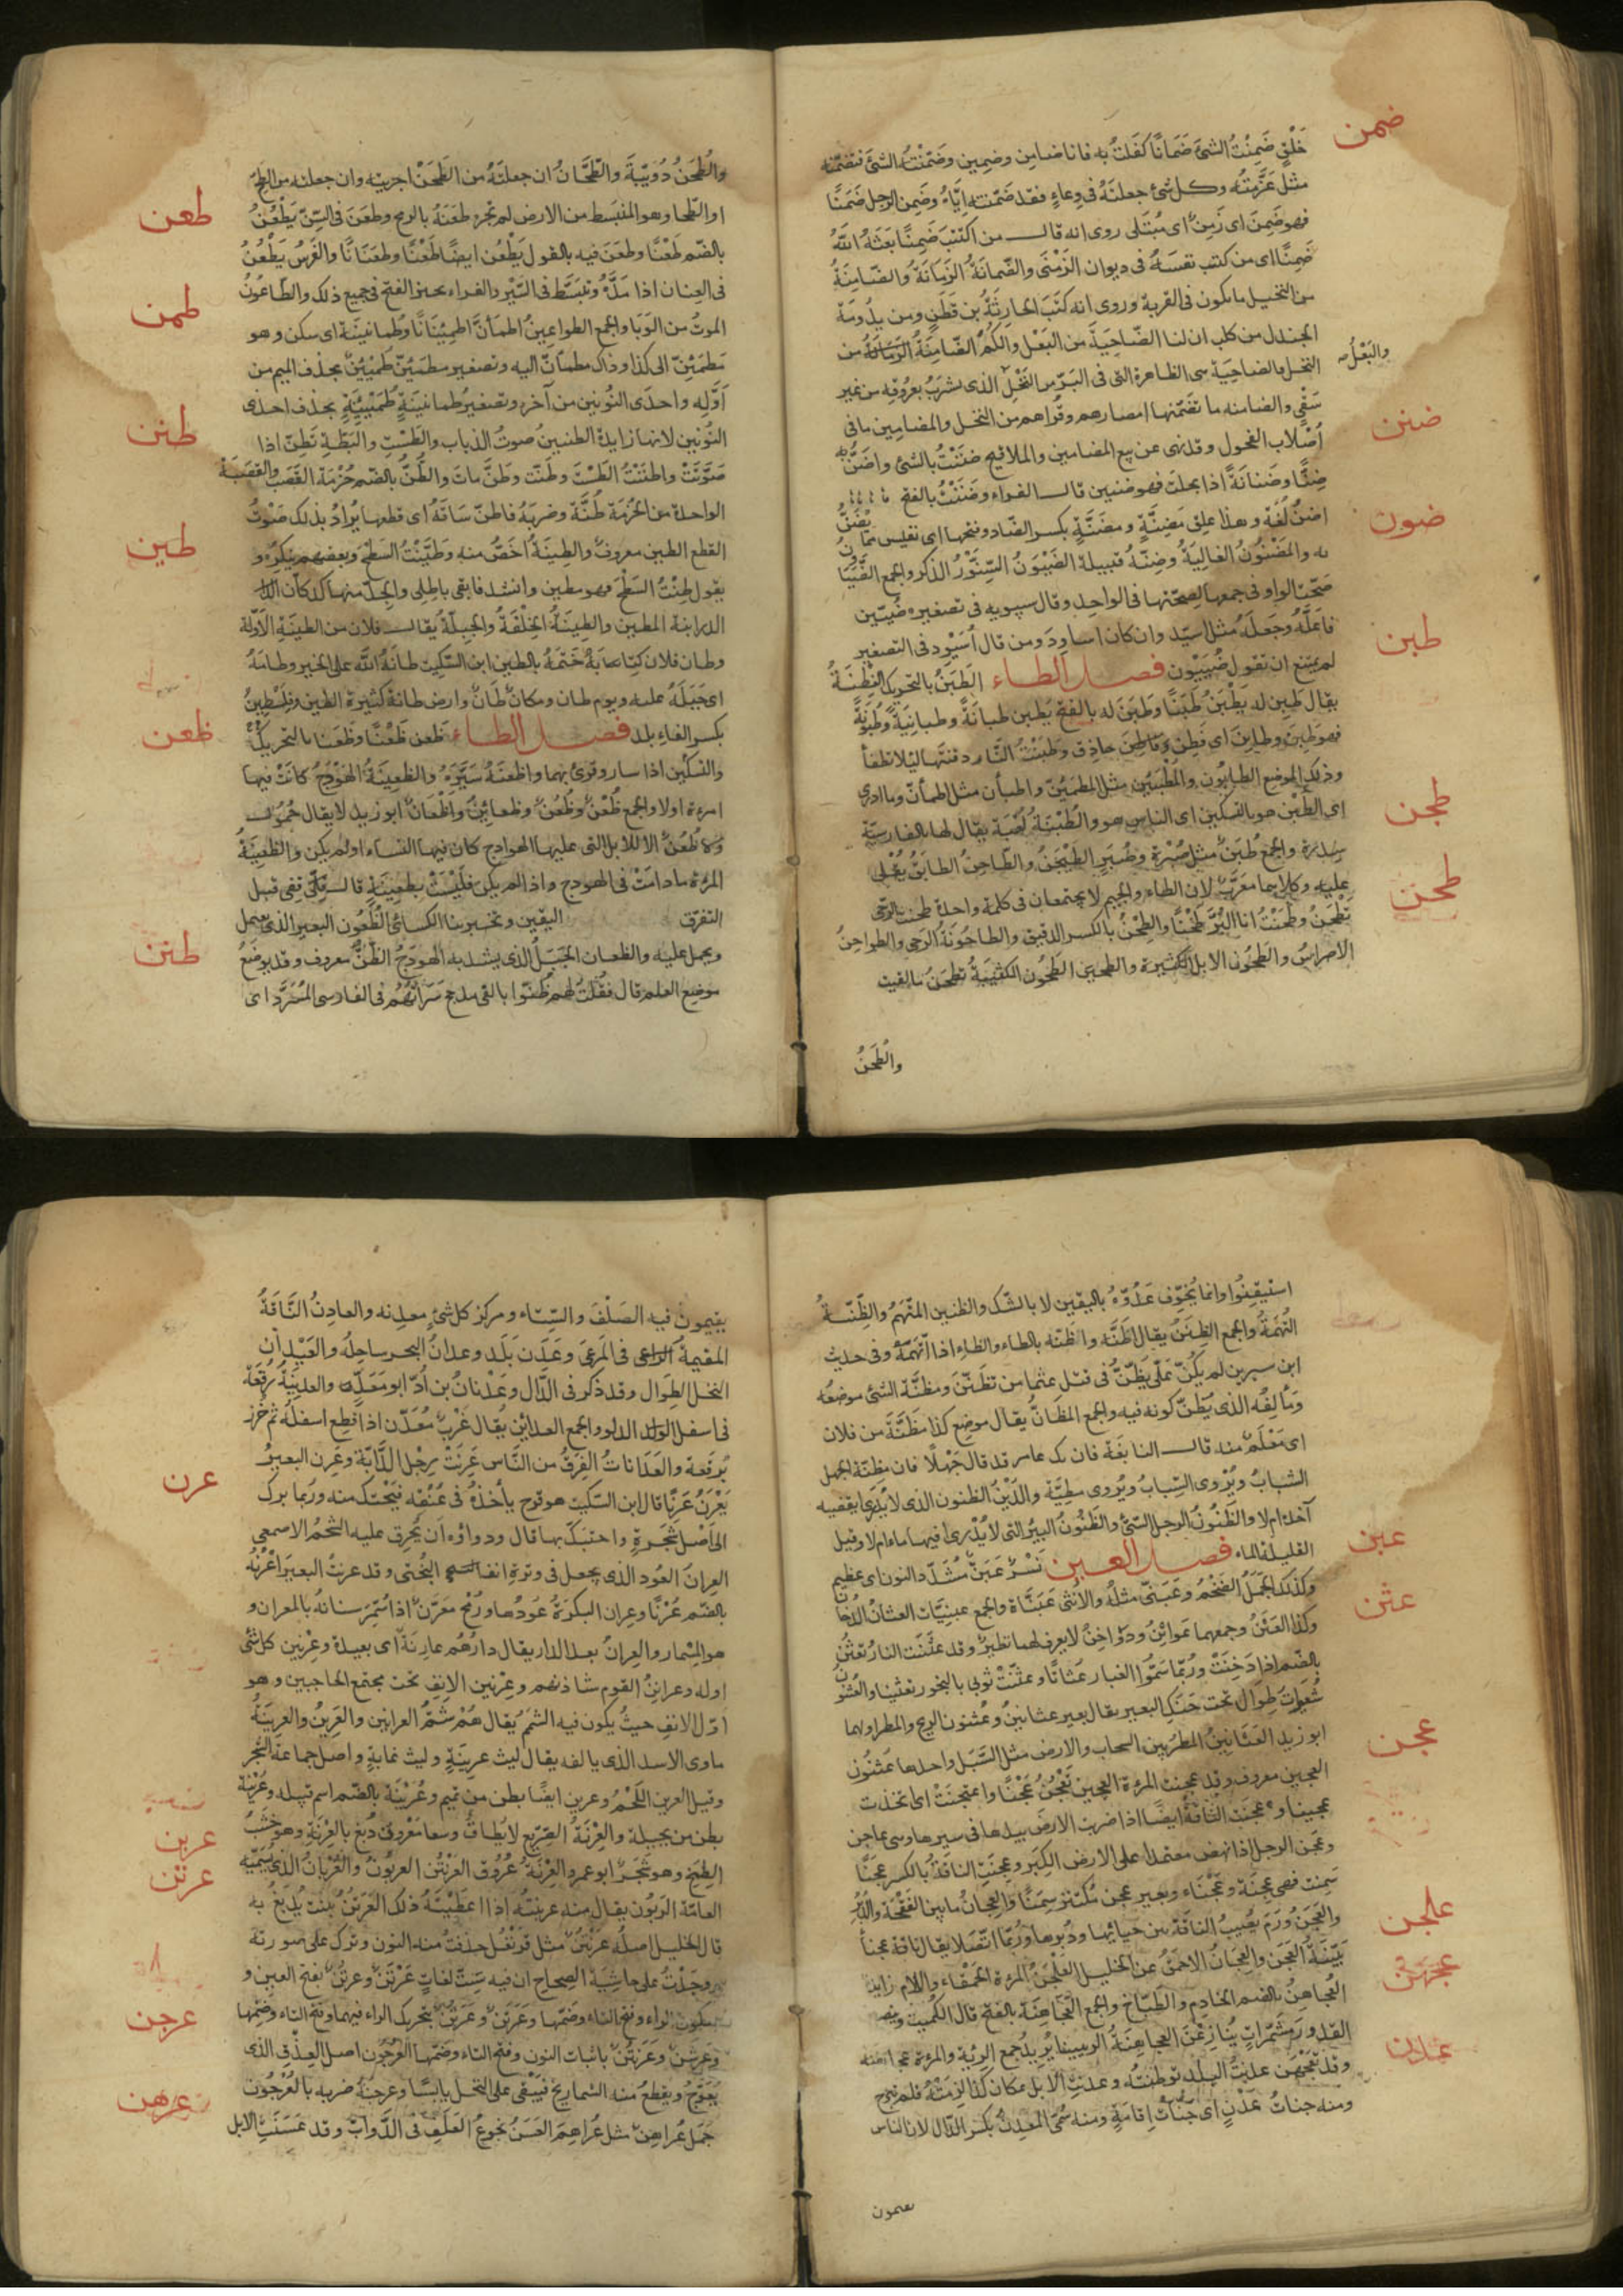 ضمن
خَلَقٍ ضَمِنْتُ الشئَ ضَمَانًا كَفَلْتُ به فانا ضامِن وضمِين وضَمّنْتُه الشئَ فتضمّنه
مثل غَرَّمتُه وكل شئ جعلتَهُ فى وِعاءٍ فقد ضَمّنته اِيَّاهُ وضَمِن الرجل ضَمَنًا
فهو ضَمِنٌ اى زَمِنٌ اى مُبْتَلى روى انه قال من اكتَتَبَ ضَمِنًا بَعَثَهُ اللهُ
ضَمِنًا اى من كتب نفسَهُ فى ديوان الزَمْنَى والضّمانَةُ الزَمَانَةُ والضّامِنَةُ
من النخيل ما يكون فى القرية وروى انه كَتَبَ لحارِثَةُ بن قَطَنٍ ومن بدُومَة
الجندل من كلب ان لنا الضّاحِيَة من البَعْل ولكُم الضّامِنَةُ من
والبَعْلُ
النخل بالضاحِيَة هى الظاهرة التى فى البَرّ من النَخْل الذى يشرَبُ بعروقه من غير
سَقْىٍ والضامنه ما تضَمّنها امصارهم وقُراهم من النخل والمضامِين ما فى
ضنن
أَصْلَاب الفحول وقد نهى عن بيع المضامين والملاقيح ضنَنْتُ بالشئ واَضَنُّ به
ضِنًّا وضَنانَةً اذا بخلت فهو ضنين قال الفراء وضَنَنْتُ بالفتح
اضِنُّ لُغَة وهذا عِلق مَضِنَّةٍ ومضَنَّةٍ بكسر الضّاد وفتحها اى نفيس ممّا يُضَنُّ
ضون
به والمَضْنُونُ الغالِيَةُ وضِنّةُ قبيلة الضَيْوَنُ السِّنَّوْرُ الذكر والجمع الضَّيَاوِنُ
صَحّت الواو فى جمعها لصِحّتها فى الواحِد وقال سيبويه فى تصغيره ضُيَيِّن
فاَعَلَّهُ وجَعلَهُ مثل اُسَيّد وان كان اساوِدَ ومن قال اُسَيْوِد فى التصغير
طبن
لم يمتنع ان تقول ضُيَيْوِن فصل الطاء الطَبَنُ بالتحريك الفِطْنَةُ
يقال طَبِن له يَطْبَنُ طَبَنًا وطَبَنَ له بالفتح يَطْبِن طبانَةً وطبانِيَةً وطُبُونَةً
فهو طَبِنٌ وطابِنٌ اى فَطِن حاذِق وطَبَنْتُ النّار دفنتَها ليلا تطفأ
وذلك الموضع الطابُون والمُطْبَئِنّ مثل المطمَئِنّ واطبأن مثل اطمأنّ وما ادرى
اى الطَّبْن هو بالتسكين اى الناس هو والطُبْنَة لُعبَة يقال لها بالفارسية
طجن
سِدَرَة والجمع طُبَنٌ مثل صُبْرَة وصُبَرٍ الطَيْجَنُ والطّاجِنُ الطابَقُ يُقْلى
عليه وكلاهما معَرّبٌ لان الطاء والجيم لا يجتمعان فى كلمة واحدة طحنت الرحى
طحن
تَطْحَنُ وطَحَنْتُ انا البُرَّ طَحْنًا والطِحْنُ بالكسر الدقيق والطاحُونَةُ الرَحى والطواحِنُ
الاضراسُ والطَحُون الابل الكثيرة والطَحُون الكَتِيبَةُ تطحَنُ ما لقيت
والطُحَنُ
والطُحَنُ دُوَيْبَةٌ والطّحَّانُ ان جعلتَهُ من الطَحْن اجريته وان جعلته من الطَحّ
طعن
او الطَحا وهو المنبَسط من الارض لم تجره طعَنَهُ بالرمح وطعَنَ فى السِّنّ يَطْعُنُ
بالضّم طَعْنًا وطعَنَ فيه بالقول يَطْعُن ايضًا طَعْنًا وطعَنَانًا والفَرَسُ يَطْعُنُ
فى العِنان اذا مَدَّهُ وتبَسَّط فى السَّيْر والفراء يجيز الفتح فى جميع ذلك والطاعُونُ
طمن
الموتُ من الوَبَا والجمع الطواعِينُ اطمَأنَّ اطمِئنَانًا وطُمانينَة اى سكن وهو
مَطمَئِنّ الى كذا وذاك مطمأنّ اليه وتصغير مطمَئِنّ طُمَيْئِنٌ بحذف الميم من
اَوَّلِه واحدَى النُونين من آخره وتصغير طُمانينَةٍ طُمَيْئِينَةٍ بحذف احدى
طنن
النُونين لانها زايدة الطنينُ صوتُ الذباب والطَسْتِ والبَطّة تَطِنّ اذا
صَوَّتَتْ واطنَنْتُ الطَسْتَ وطَنّت وطَنَّ ماتَ والطُنُّ بالضم حُزمَة القَصَب والقصَبَةُ
الواحدة من الحُزمَة طُنَّة وضربَهُ فاطنّ ساقَهُ اى قطعها يُرادُ بذلك صَوْتُ
طين
القطع الطين معروف والطِينَةُ اخَصُّ منه وطَيَّنْتُ السَطْحَ وبعضهم ينكرُه و
يقول طِنْتُ السَطْحَ فهو مطين وانشد فابقى باطِلى والجِدّ منها كدكان
الدرابنة المطين والطِينَةُ الخِلْقَةُ والجبِلّةُ يقال فلان من الطينَةِ الاَوّلة
وطان فلان كِتابَهُ خَتَمَهُ بالطين ابن السّكيت طانَهُ الله على الخير وطامَهُ
اى جَبَلَهُ عليه ويوم طان ومكانٌ طَانٌ وارض طانة كثيرة الطين وفِلَسْطِينُ
ظعن
بكسر الفاء بلد فصل الظاء ظعن ظَعْنًا وظعَنا بالتحريك
والتسكين اذا سار وقرئ بهما واظعَنَهُ سَيّرَهُ والظعِينَةُ الهَوْدَجُ كانَتْ فيها
امرءة اولا والجمع ظُعْنٌ وظُعُنٌ وظعائِنُ واَظْعَانٌ ابو زيد لا يقال حُمُولٌ
ولا ظُعُنٌ الا للابل التى عليها الهوادج كان فيها النساء اولم يكن والظعِينَةُ
المرءة ما دامَتْ فى الهودج واذا لم يكن فليْسَتْ بظعِينَةٍ قال قفى قبل
التفرق اليقين وتخبرينا الكسائىُّ الظُعُون البعير الذى يعمل
ظنن
ويحمل عليه والظعان الحَبْلُ الذى يشد به الهَودَجُ الظَنُّ معروف وقد يوضَعُ
موضع العلم قال فقُلتُ لهُم ظُنّوا بالفى مدجج سَرَاتُهُم فى الفارسى المُسَرَّد اى
استيقِنُوا وانما يُخَوّف عَدُوَّهُ باليقين لا بالشّك والظنين المتّهَمُ والظِّنّةُ
التُهَمَةُ والجمع الظِنَنُ يقال اظنَّه واظَنّه بالطاء والظاء اذا اتّهمَهُ وفى حديث
ابن سيرين لم يكُنْ عَلىٌّ يَظَّنُّ فى قتل عثمان من تظَنّنَ ومظنَّة الشئ موضعُه
ومَألِفُه الذى يُظَنّ كونه فيه والجمع المظَانُّ يقال موضع كذا مظَنَّةٌ من فلان
اى مَعْلَمٌ منه قال النابغَة فان يك عامر قد قال جَهْلًا فان مظِنّة الجهل
الشبابُ ويُرْوى السِّبابُ ويُروى مطِيّة والدَّيْنُ الظنون الذى لا يُدرى ايقضيه
آخذه ام لا والظَنُونُ الرجل السَّئُ والظَنُونُ البئر التى لا يُدرى افيها ماء ام لا وقيل
عبن
القليلة الماء فصل العين نَسْرٌ عَبَنٌّ مُشَدّد النون اى عظيم
وكذلك الجَمَلُ الضخم وعَبَنّى مثله والانثى عَبَنَّاة والجمع عبنيَّات العثانُ الدخان
عثن
وكذا العَثَنُ وجمعهما عَواثِنُ ودَوَاخِنُ لا يعرف لهما نظيرٌ وقد عثَنَت النار تعثُنُ
بالضّم اذا دَخَنَتْ ورُبّما سَمَّوا الغبار عَثانًا وعثّنْتُ ثوبى بالبخور تعثينا والعُثنُون
شُعَيرات طِوَال تحت حَنَكِ البعير يقال بعير ذو عثانينُ وعُثنون الريح والمطر اولهما
ابو زيد العَثانِينُ المطرُ بين السحاب والارض مثل السَّبَل واحدها عُثنُون
عجن
العجين معروف وقد عجنت المرءة العجين تَعْجُنُ عَجْنًا واعتجنَتْ اى اتخذت
عجينا وعجَنَت النّاقةُ ايضًا اذا ضربت الارضَ بيديها فى سيرها وهى عاجن
وعجَن الرجل اذا نهض معتمدا على الارض الكِبَر وعجِنَتِ الناقةُ بالكسر عجَنًا
سَمِنت فهى عجِنَة وعَجْنَاء وبعير عجن مُكتنز سِمَنًا والعِجانُ ما بين الفَقْحَة والدُبُرِ
والعَجَنُ وَرَم يصيبُ الناقَة بين حيائها ودُبُرها ورُبّما اتّصلا يقال ناقة عجنآ
علجن
بَيّنَةُ العَجَن والعِجانُ الاحمَقُ عن الخليل العَلْجَنُ المرءة الحَمْقَاء واللام زايدة
عجهن
العُجاهِنُ بالضم الخادِم والطبّاخ والجمع العَجَاهِنَة بالفتح قال الكُمَيت
القِدورَ مُشَمّراتٍ يُنازِعْنَ العجاهِنَةَ الرِيينا يُريدُ جمع الرِئة والمرءة عجاهنة
عدن
وقد تعَجْهَن عدنْتُ البلد توطنتُه وعدنَتِ الابل بمكان كذا لزمَتْهُ فلم تبرح
ومنه جناتُ عَدْنٍ اى جَنَّات اِقامَةٍ ومنه سُمّىَ المعدِنُ بكسر الدّال لان الناس
يقيمون
يقيمون فيه الصَيْفَ والشتاء ومركز كل شئٍ معدِنه والعادِنُ النّاقَةُ
المقيمةُ فى المَرعَى وعَدَن بَلَد وعدانُ البحر ساحِلُه والعَيْدانُ
النخل الطِوَال وقد ذكر فى الدّال وعَدْنانُ بن اُدّ ابو مَعَدٍّ والعدِينَةُ رُقعَة
فى اسفل الدلو والجمع العداين يُقال غَرْبٌ مُعَدَّنٌ اذا قُطِع اسفلُه ثم خُرز
برُقعة والعَدَاناتُ الفِرَقُ من النّاس عَرِنَتْ رِجل الدّابّة وعَرِن البعير
عرن
يَعْرَنُ عَرَنًا قال ابن السّكيت هو قرح يأخذُهُ فى عُنُقه فيَحْتكُّ منه ورُبما برك
الى اَصْل شَجَرةٍ واحتَكّ بها قال ودواؤه اَن يُحْرَق عليه الشحْمُ الاصمعى
العِرانُ العُود الذى يجعل فى وترة انف البُختى وقد عرنتُ البعيرَ اعْرُنُه
بالضّم عَرْنًا وعِران البكرَةُ عُودها ورُمْح معَرّنٌ اذا سُمِّر سنانُه بالعران و
هو المِسْمار والعِرانُ بعد الدار يقال دارُهُم عارِنَةٌ اى بعيدة وعِرْنين كل شئ
اوله وعرانينُ القوم سَادتهم وعِرْنين الانف تحت مجتمع الحاجبين وهو
اوّل الانف حيثُ يكون فيه الشمم يقال هُمْ شُمُّ العرانين والعَرِينُ والعَرِينَةُ
ماوى الاسد الذى يالفه يقال ليث عرينَةٍ وليث غابةٍ واصل جماعة الشجر
وقيل العرين اللَّحْمُ وعرين ايضًا بطن من تميم وعُرَيْنَة بالضّم اسم قبيله وعُرَيْنَة
بطن من بجيلة والعِرْنَةُ الصّرِيع لا يُطاقُ وسقاء مَعْرُونٌ دُبغ بالعِرْنَةِ وهو خَشَبُ
عربن
الظِمَخ وهو شجَرٌ ابو عمرو العِرْنَة عُرُوق العَرَنْتُن العربُونُ والعُرْبانُ الذى تُسَمّيه
عرتن
العامّة الرَبُون يقال منه عربنتُه اذا اعطَيْتَهُ ذلك العَرَتَنُ نبت يُدْبَغُ به
قال الخليل اصلُه عَرَنْتُنٌ مثل قَرَنْفُل حذفت منه النون وترك على صورته
ووجدْتُ على حاشيَة الصِحاح ان فيه سِتّ لغاتٍ عَرْتَنٌ وعرتُنٌ بفتح العين و
سكون الراء وفتح التاء وضمّها وعَرَتَنٌ وعَرَتُنٌ بتحريك الراء فيهما وفتح التاء وضمّها
عرجن
وعَرَنْتَنٌ وعَرَنْتُنٌ باثبات النون وفتح التاء وضمّها العُرجُون اصل العِذْق الذى
يَعْوَجُّ ويقطع منه الشماريخ فيبْقَى على النخل يابسًا وعرجنَهُ ضربه بالعُرْجُون
عرهن
جَمَل عُراهِنٌ مثل عُراهِمٌ العَسَنُ نجُوعُ العَلَفِ فى الدَّوابّ وقد عَسَنَتِ الابل